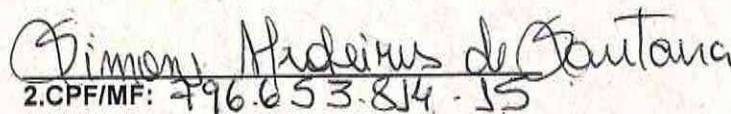 Simony Medeiros de Santana
2.CPF/MF: 796.653.814-15